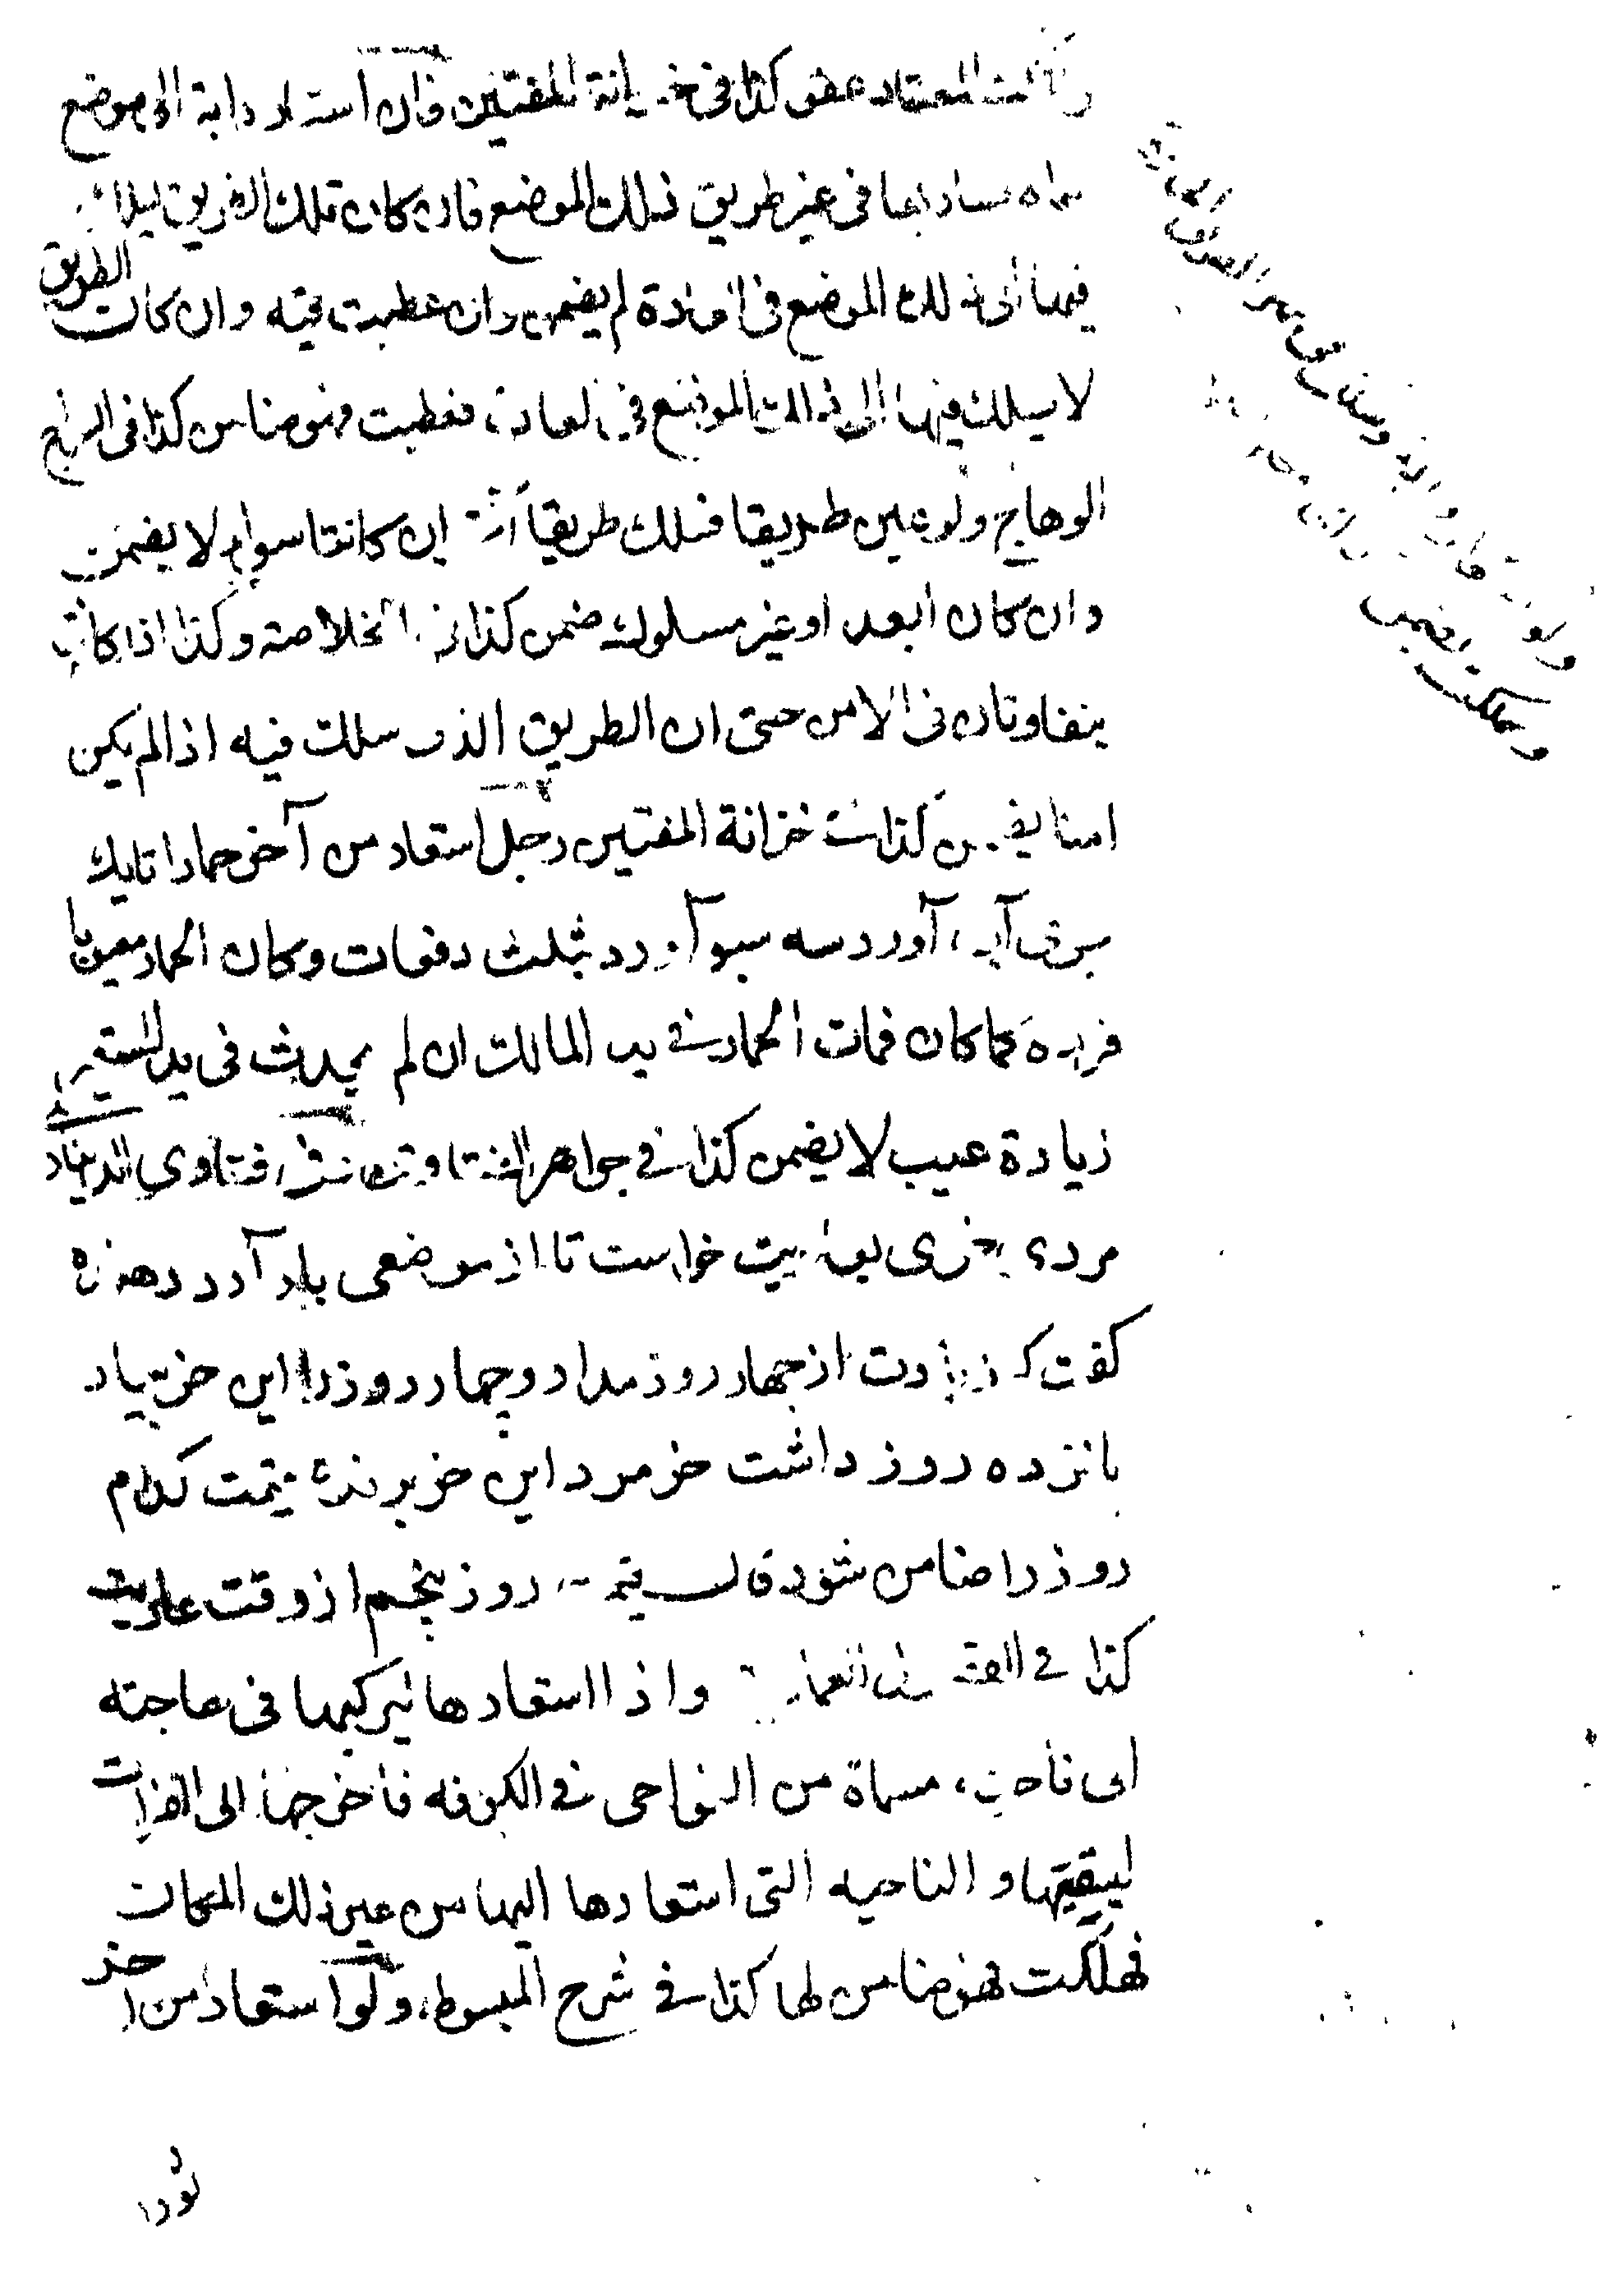 المعتاد عفو كذا فى خزانة المفتين وان استعار دابة الى موضع
سماه فسار بها فى غير طريق ذلك الموضع فان كان تلك الطريق يسلك
فيها الى ذلك الموضع فى العادة لم يضمن وان عطبت فيه وان كان الطريق
لا يسلك فيها الى ذلك الموضع فى العادة فعطبت فهو ضامن كذا فى السراج
الوهاج ولو عين طريقا فسلك طريقا آخر ان كانتا سواء لا يضمن
وان كان ابعد او غير مسلوك ضمن كذا فى الخلاصة وكذا اذا كان
يتفاوتان فى الامن حتى ان الطريق الذى سلك فيه اذا لم يكن
امنا يضمن كذا فى خزانة المفتين رجل استعار من آخر حمارا تا يك
سبوى آب آورد سه سبو آورد بثلث دفعات وكان الحمار معيوبا
فرده كما كان فمات الحمار فى يد المالك ان لم يحدث فى يد المستعير
زيادة عيب لا يضمن كذا فى جواهر الفتاوى فى فتاوى الديناري
مردى خرى بعاريت خواست تا از موضعى بار آرد دهنده
كفت كه زيادت از چهار روز مدار و چهار روز را اين خر بيار
پانزده روز داشت خر مرد اين خر برنده قيمت كدام
روز را ضامن شود قال قيمة روز پنجم از وقت عاريت
كذا فى الفصول العمادية واذا استعارها ليركبها فى حاجته
الى ناحية مسماة من النواحى فى الكوفه فأخرجها الى الفرات
ليسقيها و الناحيه التى استعارها اليها من غير ذلك المكان
فهلكت فهو ضامن لها كذا فى شرح المبسوط ولو استعار من آخر
ثورا
وهلكت يضمن